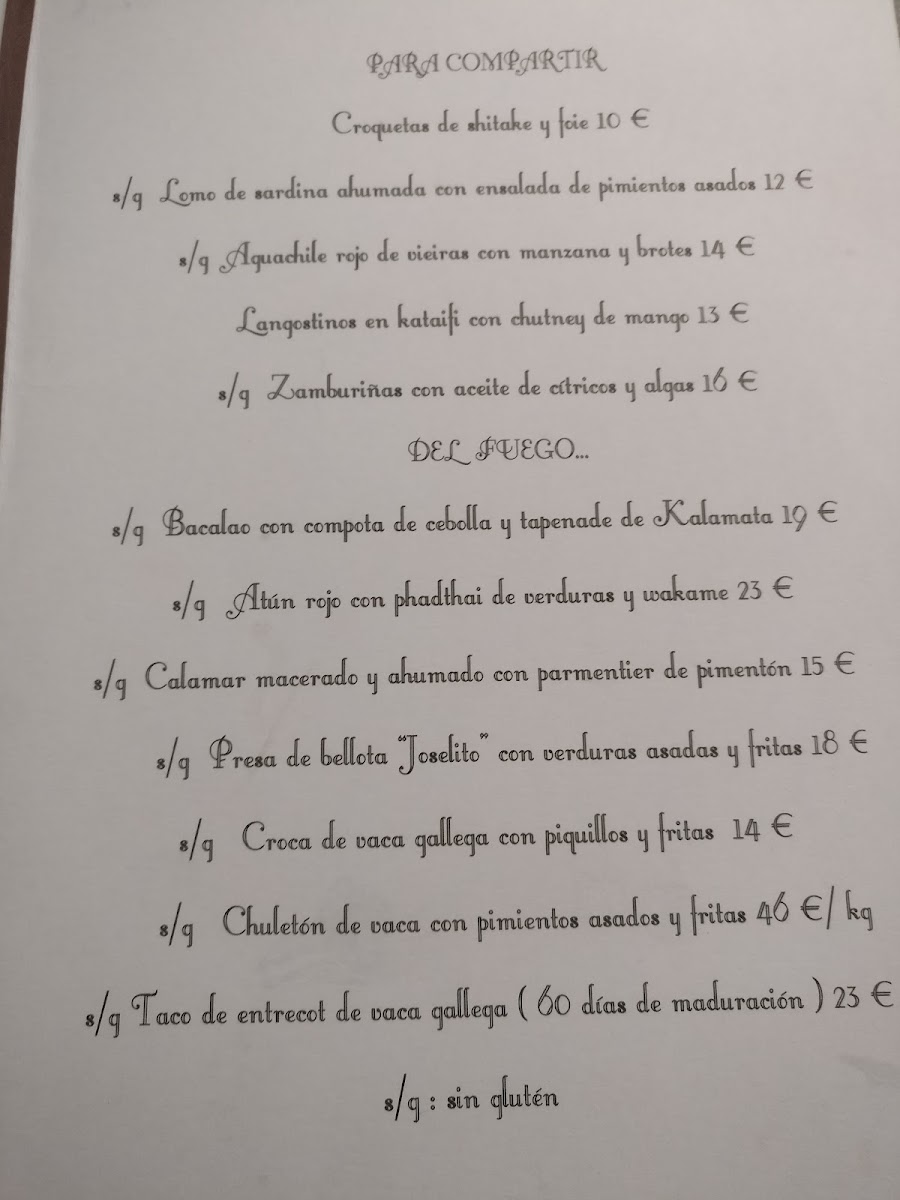 PARA COMPARTIR
Croquetas de shitake y foie 10 €
s/g Lomo de sardina ahumada con ensalada de pimientos asados 12 €
s/g Aguachile rojo de vieiras con manzana y brotes 14 €
Langostinos en kataifi con chutney de mango 13 €
s/g Zamburiñas con aceite de cítricos y algas 16 €
DEL FUEGO...
s/g Bacalao con compota de cebolla y tapenade de Kalamata 19 €
s/g Atún rojo con phadthai de verduras y wakame 23 €
s/g Calamar macerado y ahumado con parmentier de pimentón 15 €
s/g Presa de bellota "Joselito" con verduras asadas y fritas 18 €
s/g Croca de vaca gallega con piquillos y fritas 14 €
s/g Chuletón de vaca con pimientos asados y fritas 46 €/ kg
s/g Taco de entrecot de vaca gallega ( 60 días de maduración ) 23 €
s/g : sin glutén